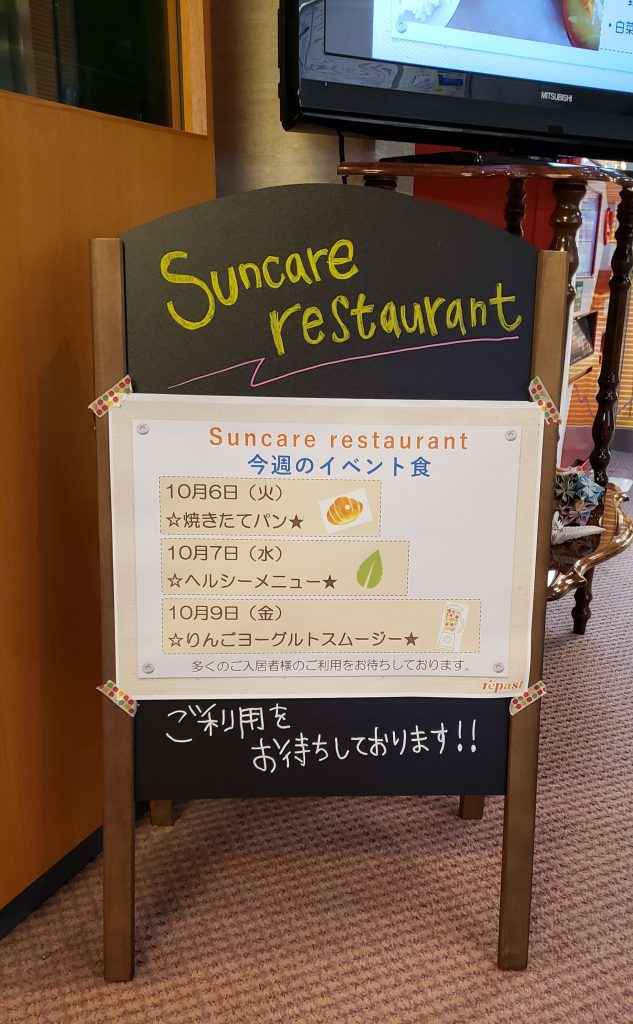 ・白菜
MITSUBISHI
Suncare
restaurant
Suncare restaurant
今週のイベント食
10月6日（火）
☆焼きたてパン★
10月7日（水）
☆ヘルシーメニュー★
10月9日（金）
☆りんごヨーグルトスムージー★
多くのご入居者様のご利用をお待ちしております。
repast
ご利用を
お待ちしております!!